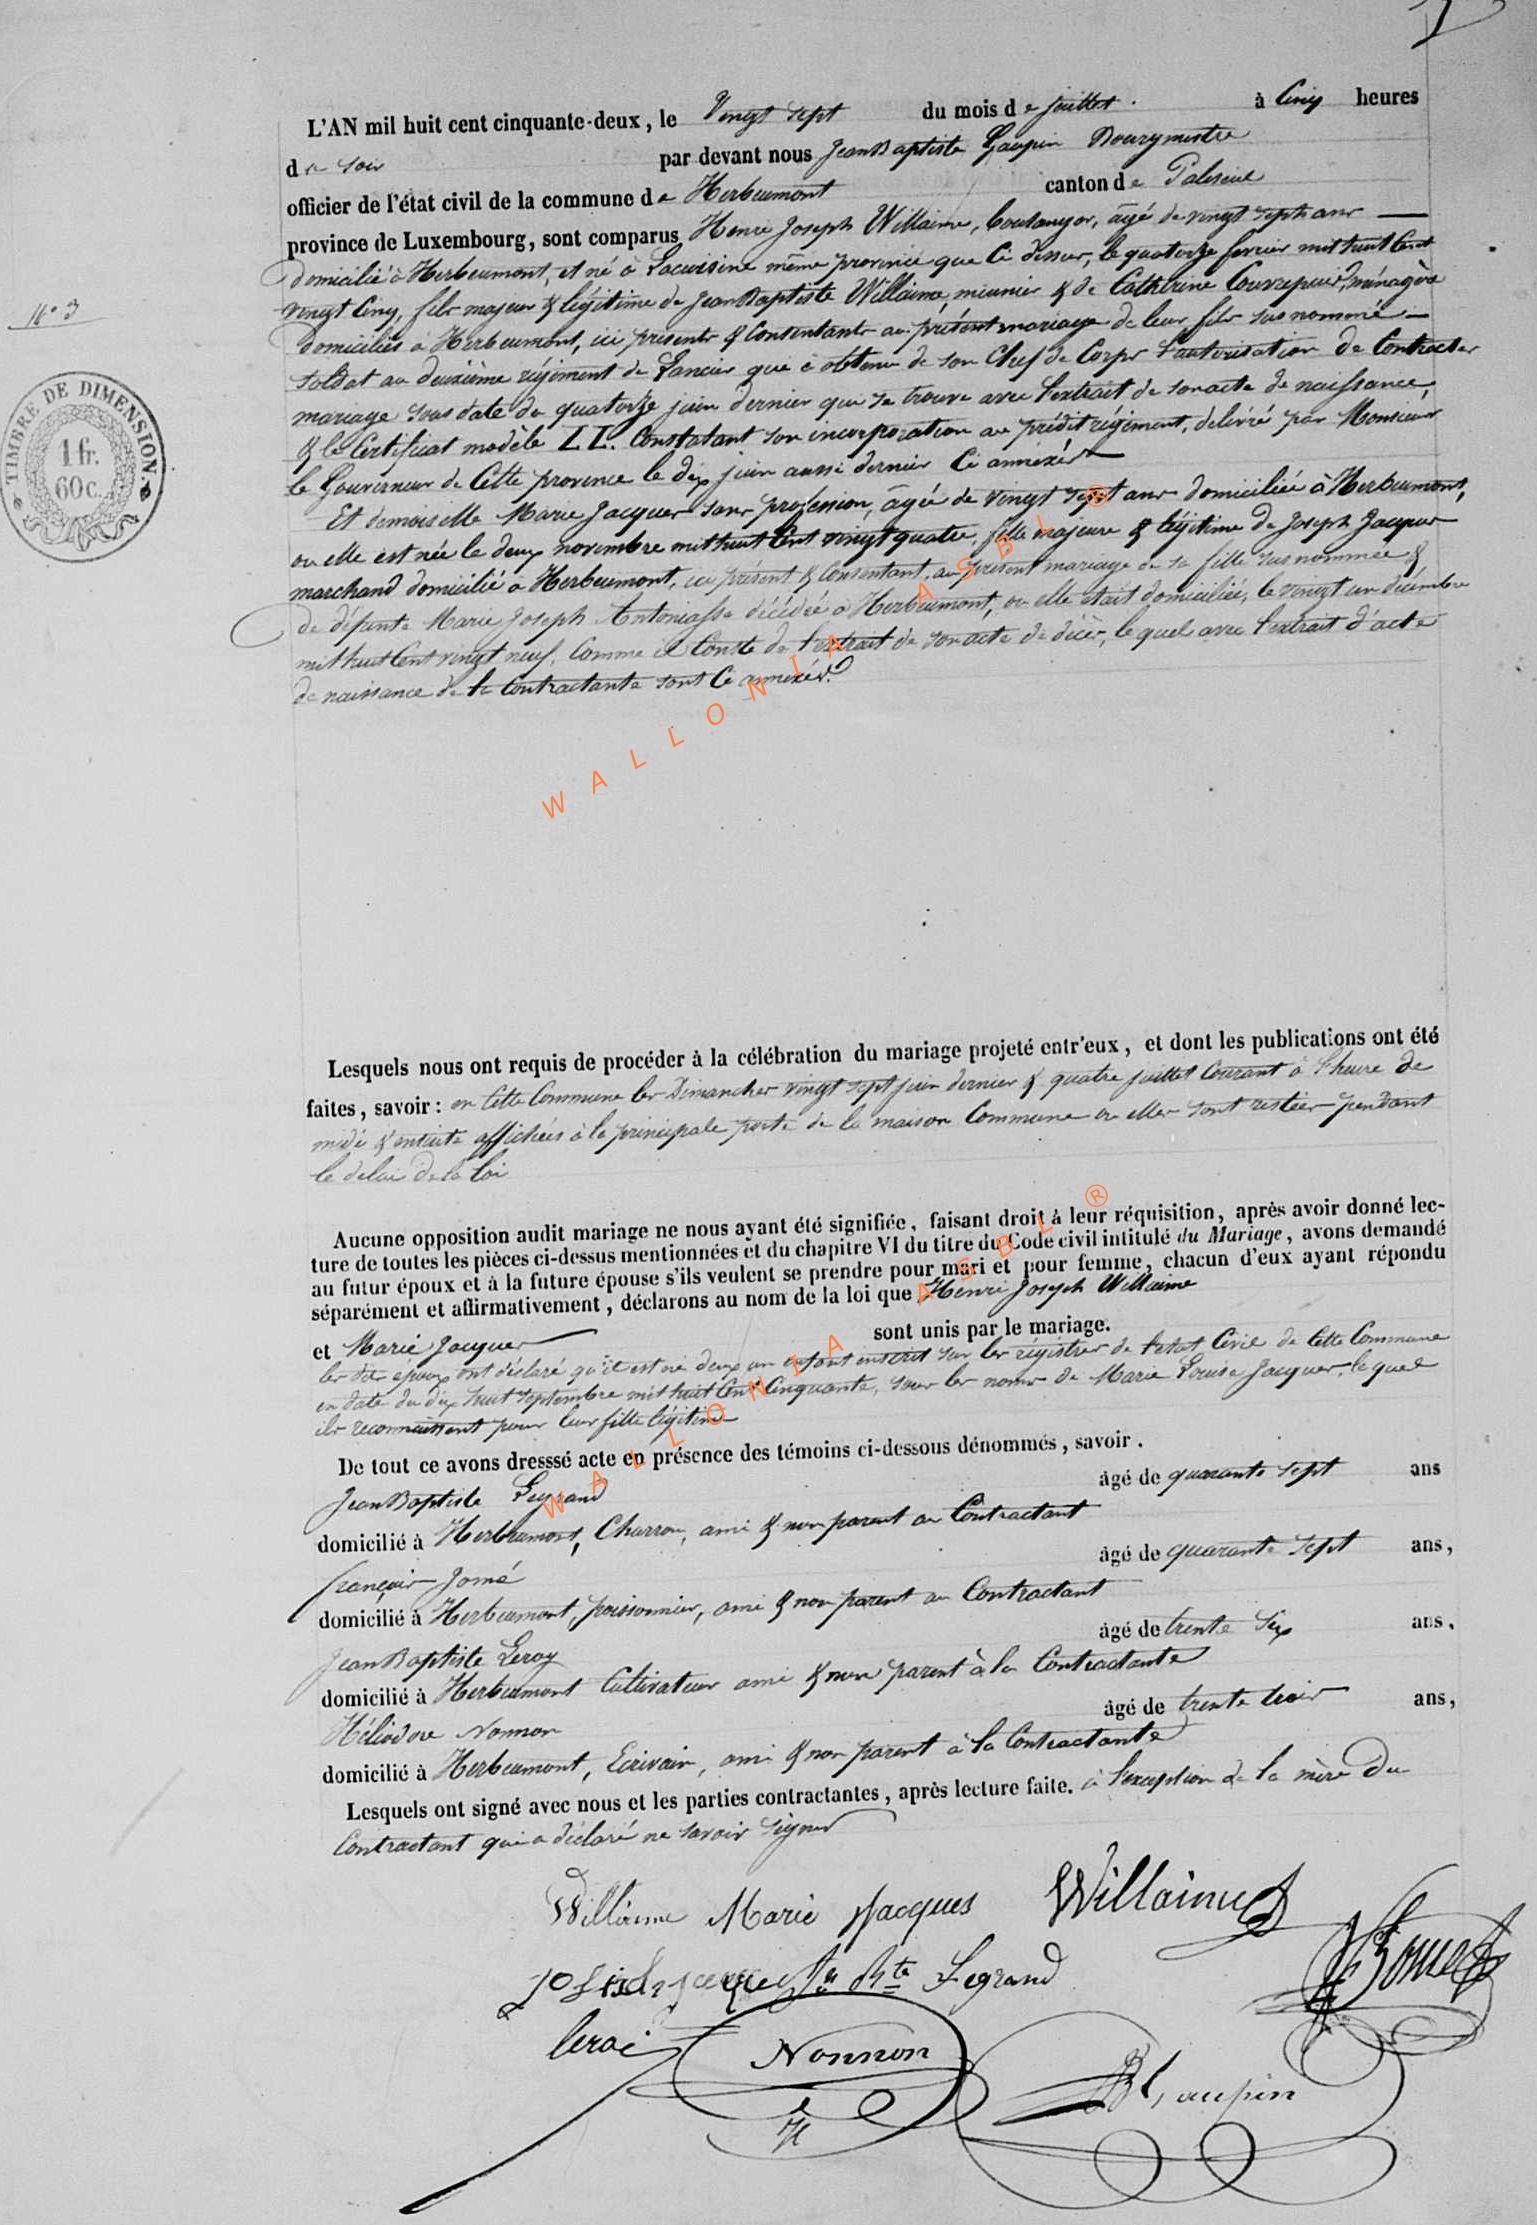 N° 3
TIMBRE DE DIMENSION.
1 fr.
60 c.
L'AN mil huit cent cinquante-deux, le Vingt sept du mois de juillet. à Cinq heures
de soir par devant nous Jean Baptiste Gaupin Bourgmestre
officier de l'état civil de la commune de Herbeumont canton de Paliseul
province de Luxembourg, sont comparus Henri Joseph Willaime, boulanger, âgé de vingt sept ans
domicilié à Herbeumont, et né à Lacuisine même province que Ci dessus, le quatorze fevrier mil huit Cent
vingt Cinq, fils majeur & légitime de Jean Baptiste Willaime, meunier & de Catherine ménagère
domiciliés à Herbeumont, ici présents & Consentants au présent mariage de leur fils sus nommé
soldat au deuxième régiment de Lancier qui à obtenu de son Chef de Corps l'autorisation de Contracter
mariage sous date du quatorze juin dernier qui se trouve avec l'extrait de son acte de naissance,
& le Certificat modèle LL. Constatant son incorporation au prédit régiment, délivré par Monsieur
le Gouverneur de Cette province le dix juin aussi dernier Ci annexés
Et demoiselle Marie Jacques sans profession, âgée de vingt sept ans domiciliée à Herbeumont,
ou elle est née le deux novembre mil huit Cent vingt quatre, fille majeure & légitime de Joseph Jacques
marchand domicilié à Herbeumont, ici présent & Consentant, au présent mariage de sa fille sus nommée &
de défunte Marie Joseph Antoniasse décédée à Herbeumont, ou elle était domiciliée, le vingt un décembre
mil huit Cent vingt neuf, Comme il Conste de l'extrait de son acte de décès, lequel avec l'extrait d'acte
de naissance de la Contractante sont Ci annexés.
WALLONIA ASBL ®
Lesquels nous ont requis de procéder à la célébration du mariage projeté entr'eux, et dont les publications ont été
faites, savoir: en Cette Commune les Dimanches vingt sept juin dernier & quatre juillet Courant à l'heure de
midi & ensuite affichées à la principale porte de la maison Commune ou elles sont restées pendant
le delai de la loi
Aucune opposition audit mariage ne nous ayant été signifiée, faisant droit à leur réquisition, après avoir donné lec-
ture de toutes les pièces ci-dessus mentionnées et du chapitre VI du titre du Code civil intitulé du Mariage, avons demandé
au futur époux et à la future épouse s'ils veulent se prendre pour mari et pour femme, chacun d'eux ayant répondu
séparément et affirmativement, déclarons au nom de la loi que Henri Joseph Willaime
et Marie Jacques sont unis par le mariage.
les dits époux ont déclaré qu'il est né deux un enfant inscrit sur les régistres de l'état Civil de Cette Commune
en date du dix huit Septembre mil huit Cent Cinquante, sous les noms de Marie Louise Jacques, lequel
ils reconnaissent pour leur fille légitime
De tout ce avons dresssé acte en présence des témoins ci-dessous dénommés, savoir.
Jean Baptiste Legrand âgé de quarante sept ans
domicilié à Herbeumont, Charron, ami & non parent au Contractant
françois Jomé âgé de quarante sept ans,
domicilié à Herbeumont, poissonnier, ami & non parent au Contractant
Jean Baptiste Leroy âgé de trente Six ans,
domicilié à Herbeumont Cultivateur ami & non parent à la Contractante
Héliodore Nonnon âgé de trente trois ans,
domicilié à Herbeumont, Ecrivain, ami & non parent à la Contractante
Lesquels ont signé avec nous et les parties contractantes, après lecture faite. à l'exception de la mère du
Contractant qui a déclaré ne savoir signer
WALLONIA ASBL ®
Willaime Marie Jacques Willaime
Legrand
leroi Nonnon
H